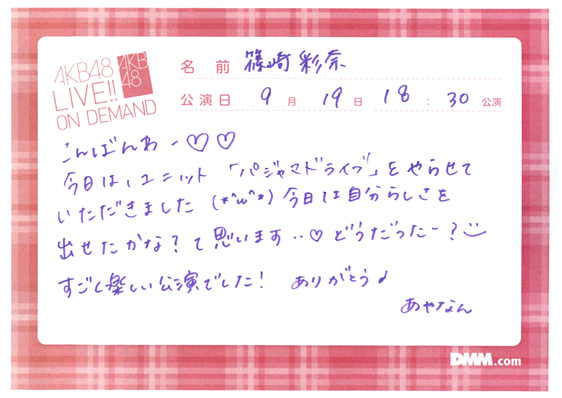 AKB48
LIVE!!
ON DEMAND
AKB
48
名前 篠崎彩奈
公演日 9月19日 18:30公演
こんばんわー♡♡
今日は、ユニット「パジャマドライブ」をやらせて
いただきました (*^ω^*) 今日は自分らしさを
出せたかな?て思います‥♡ どうだったー?
すごく楽しい公演でした! ありがとう♪
あやなん
DMM.com